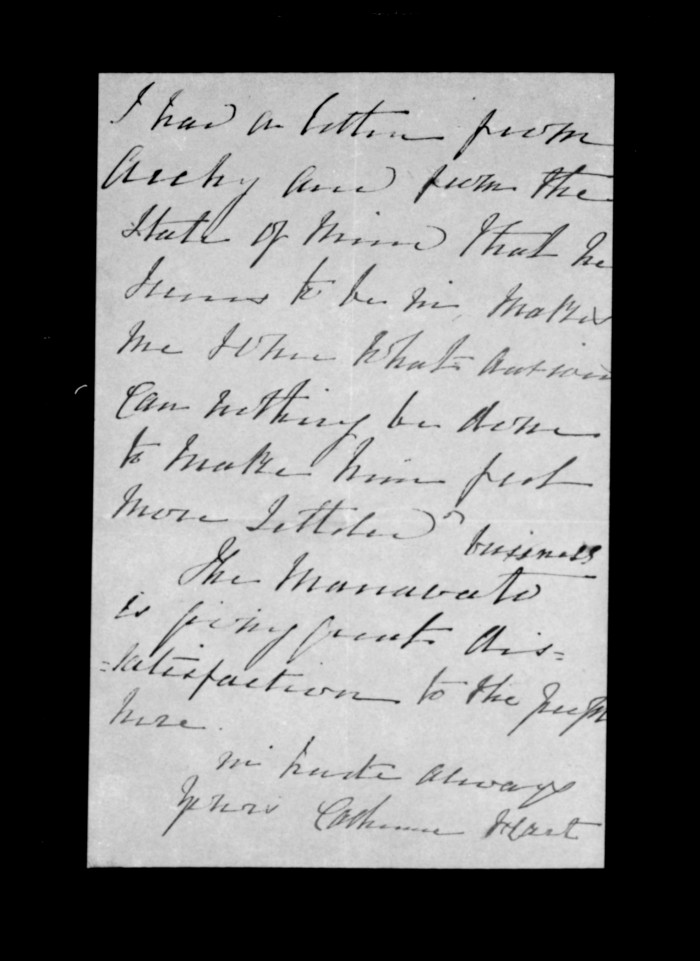 I had a letter from
Archy and from the
State of mind that he
seems to be in, makes
me some what anxious
Can nothing be done
to make him feel
more Settled?
business
The Manawatu
is giving great dis=
=satisfaction to the people
here.
in haste always
yours Catherine Hart